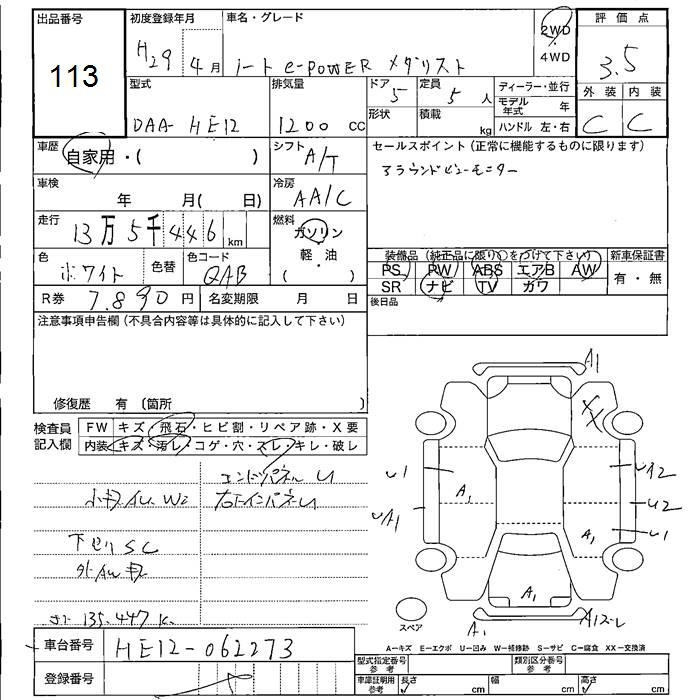 出品番号
113
初度登録年月
H29 4月
車名・グレード
ノート e-POWER メダリスト
2WD
・
4WD
評価点
3.5
外装 内装
C C
型式
DAA-HE12
排気量
1200 cc
ドア
5
形状
定員
5 人
積載
kg
ディーラー・並行
モデル年式 年
ハンドル 左・右
車歴
自家用・( )
シフト
A/T
セールスポイント (正常に機能するものに限ります)
アラウンドビューモニター
車検
年 月( 日)
冷房
AA/C
走行
13万5千446km
燃料
ガソリン
軽・油
( )
色
ホワイト
色替
色コード
QAB
装備品 (純正品に限り○をつけて下さい)
PS PW ABS エアB AW
SR ナビ TV 革 ガワ
新車保証書
有・無
R券 7,890円
名変期限 月 日
後日品
注意事項申告欄 (不具合内容等は具体的に記入して下さい)
修復歴 有 〔箇所 〕
検査員記入欄
FW キズ・飛石・ヒビ割・リペア跡・X要
内装 キズ・汚レ・コゲ・穴・スレ・キレ・破レ
エンドパネルU
小キズAU W2
右インパネU
下廻りSC
135.447K
A1
XX
U1
A1
UA2
U2
UA1
A1
U1
A1
A1
スペア
A-キズ E-エクボ U-凹み W-補修跡 S-サビ C-腐食 XX-交換済
車台番号
HE12-062273
登録番号
型式指定番号 参考
類別区分番号 参考
車庫証明用 参考
長さ cm
幅 cm
高さ cm